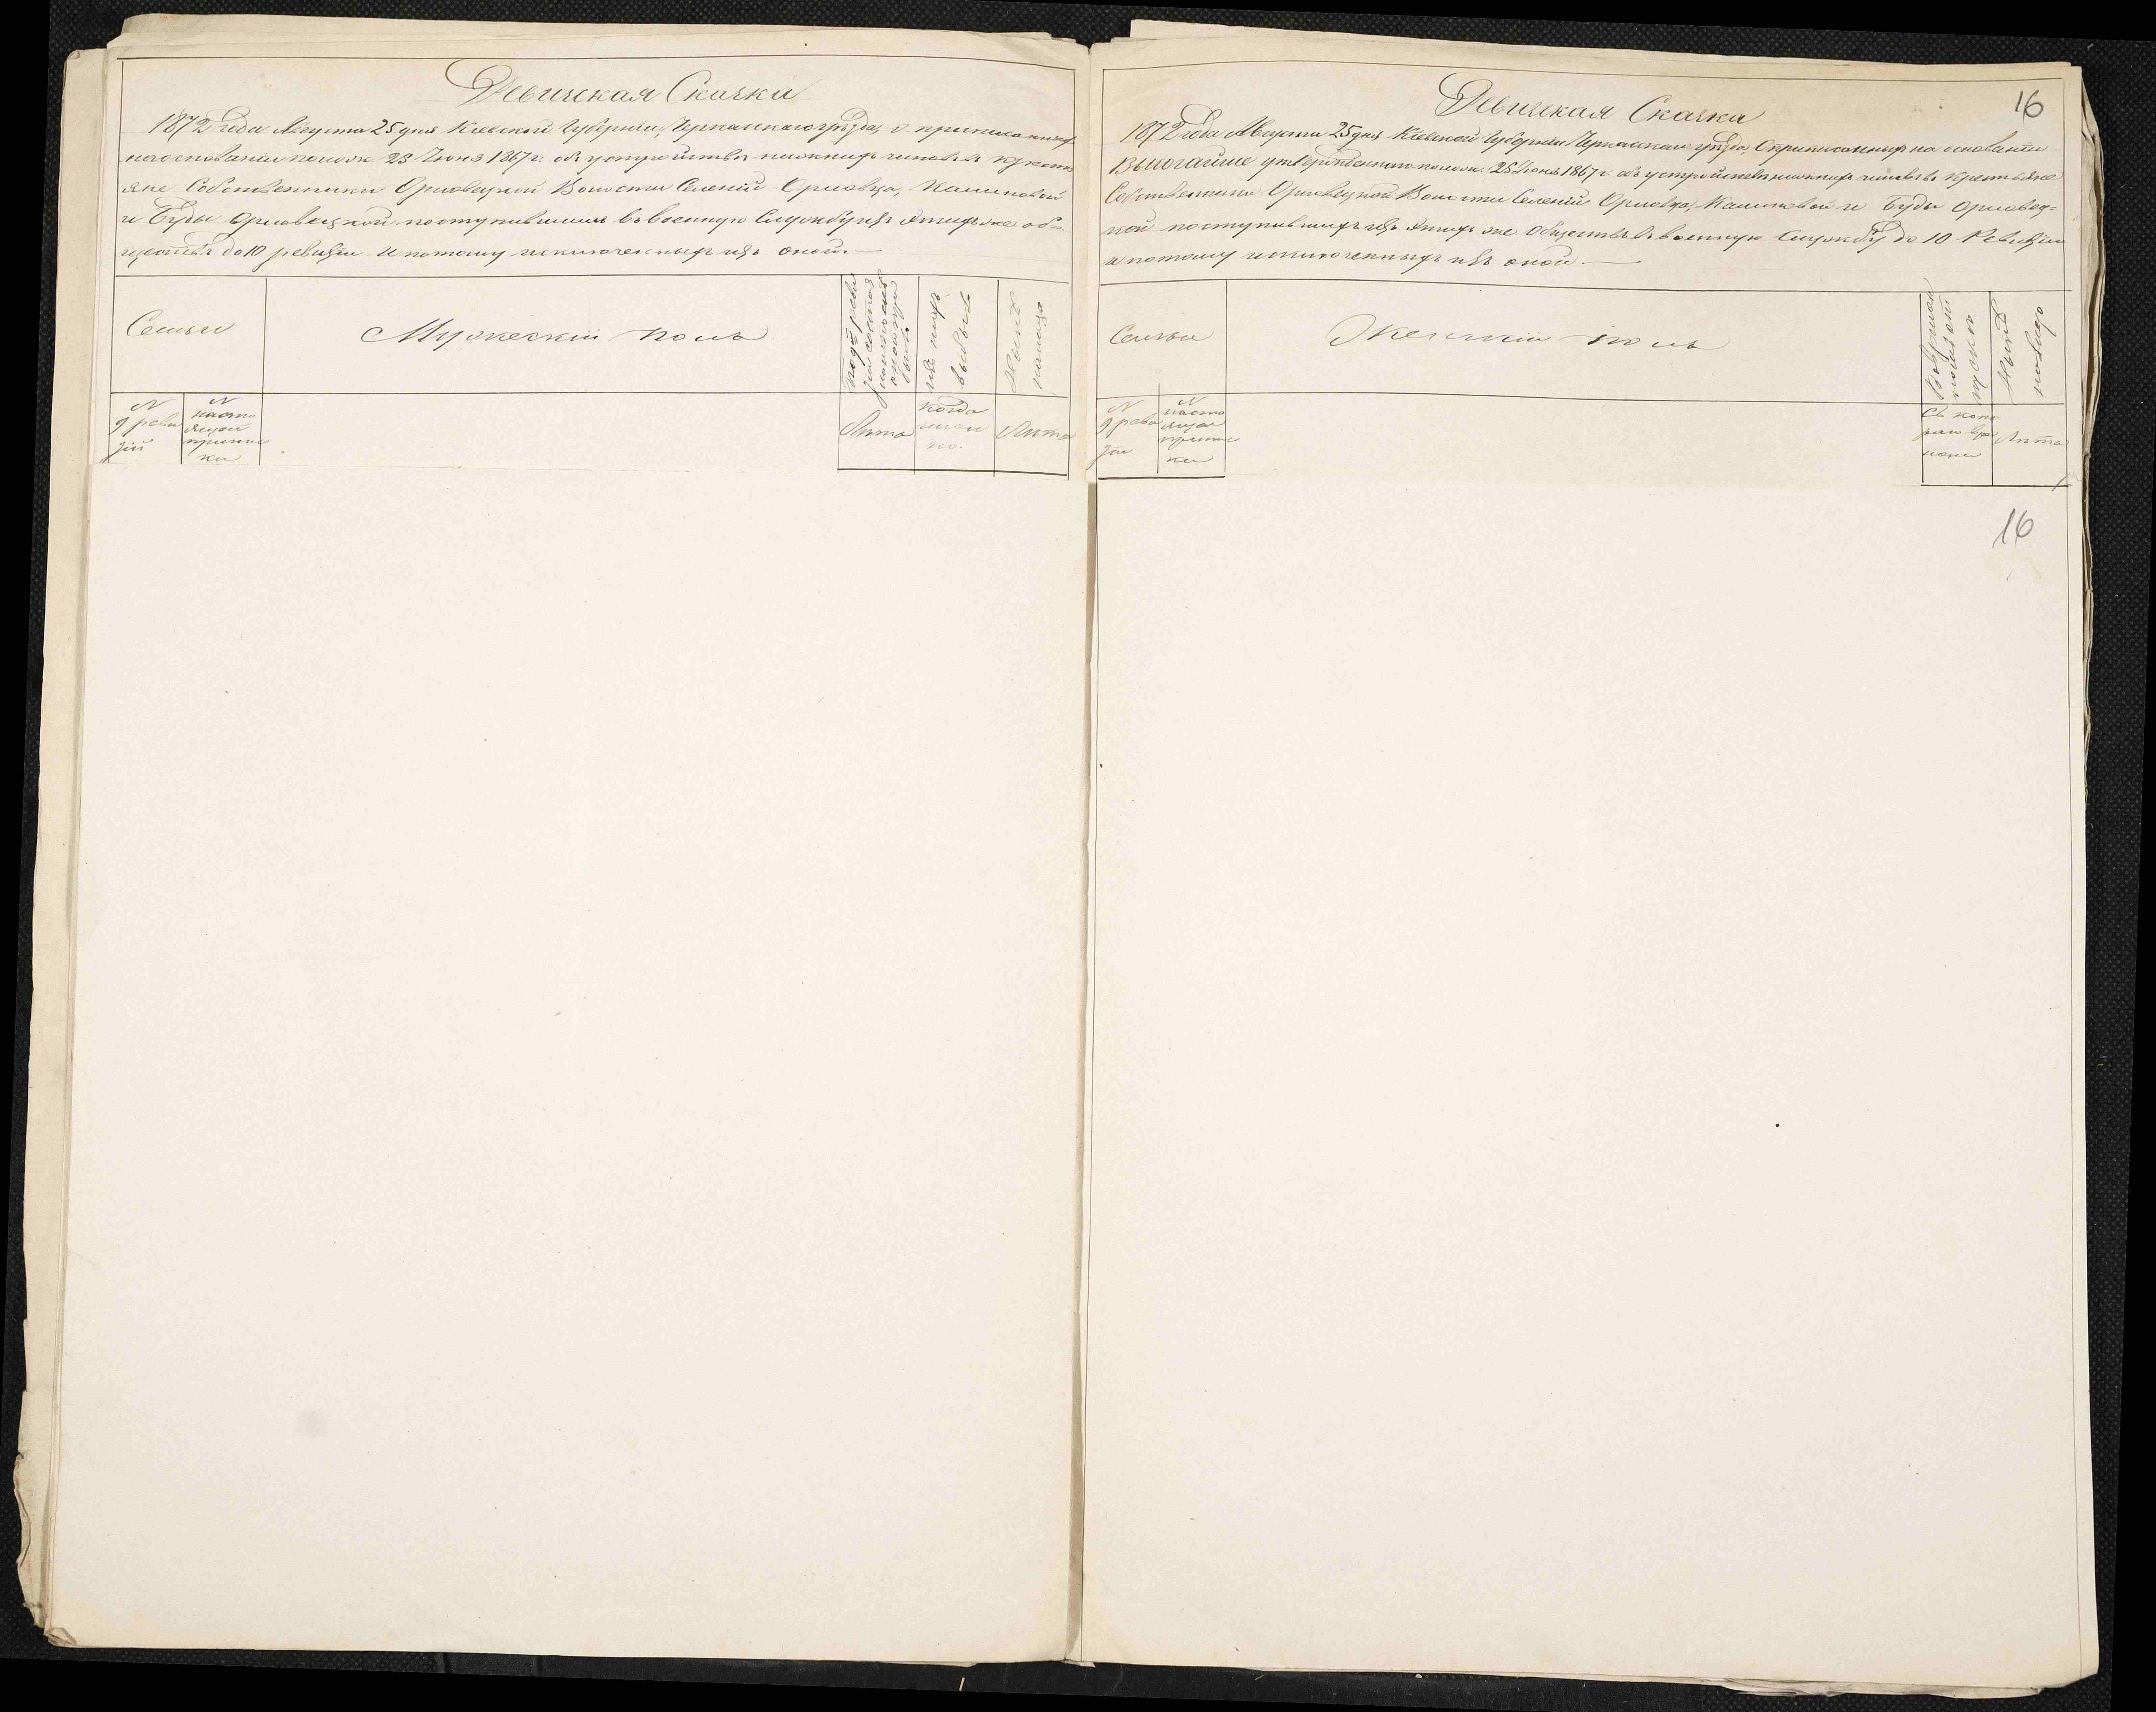 Ревизская Сказка
1872 года Августа 25 дня Кіевской Губерніи, Черкасскаго уѣзда, о приписанныхъ
на основаніи полож 25 Іюня 1867 г. объ устройствѣ нижнихъ чиновъ въ крестья
яне Собственники Орловецкой Волости Селеній Орловца, Калиновой
и Буды Орловецкой поступившихъ въ военную Службу изъ этихъ же об-
ществъ до 10 ревизіи и потому исключенныхъ изъ оной.—
Семьи
Мужескій полъ
изъ нихъ
выбыло
Нынѣ
налицо
N
9 реви
зіи
N
насто
ящей
припис
ки
Лѣта
когда
имен
но.
Лѣта
Ревизская Сказка
16
1872 года Августа 25 дня Кіевской Губерніи Черкасскаго уѣзда, О приписанныхъ на основаніи
Высочайше утвержденнаго полож 25 Іюня 1867 г. объ устройствѣ нижнихъ чиновъ въ крестьяне
Собственники Орловецкой Волости Селеній Орловца, Калиновой и Буды Орловец-
кой поступившихъ изъ этихъ же Обществъ въ военную Службу до 10 Ревизіи
и потому исключенныхъ изъ оной.—
Семьи
Женскій полъ
Нынѣ
N
9 реви
зіи
N
насто
ящей
припис
ки
Съ кото
раго вре
мени
Лѣта
16